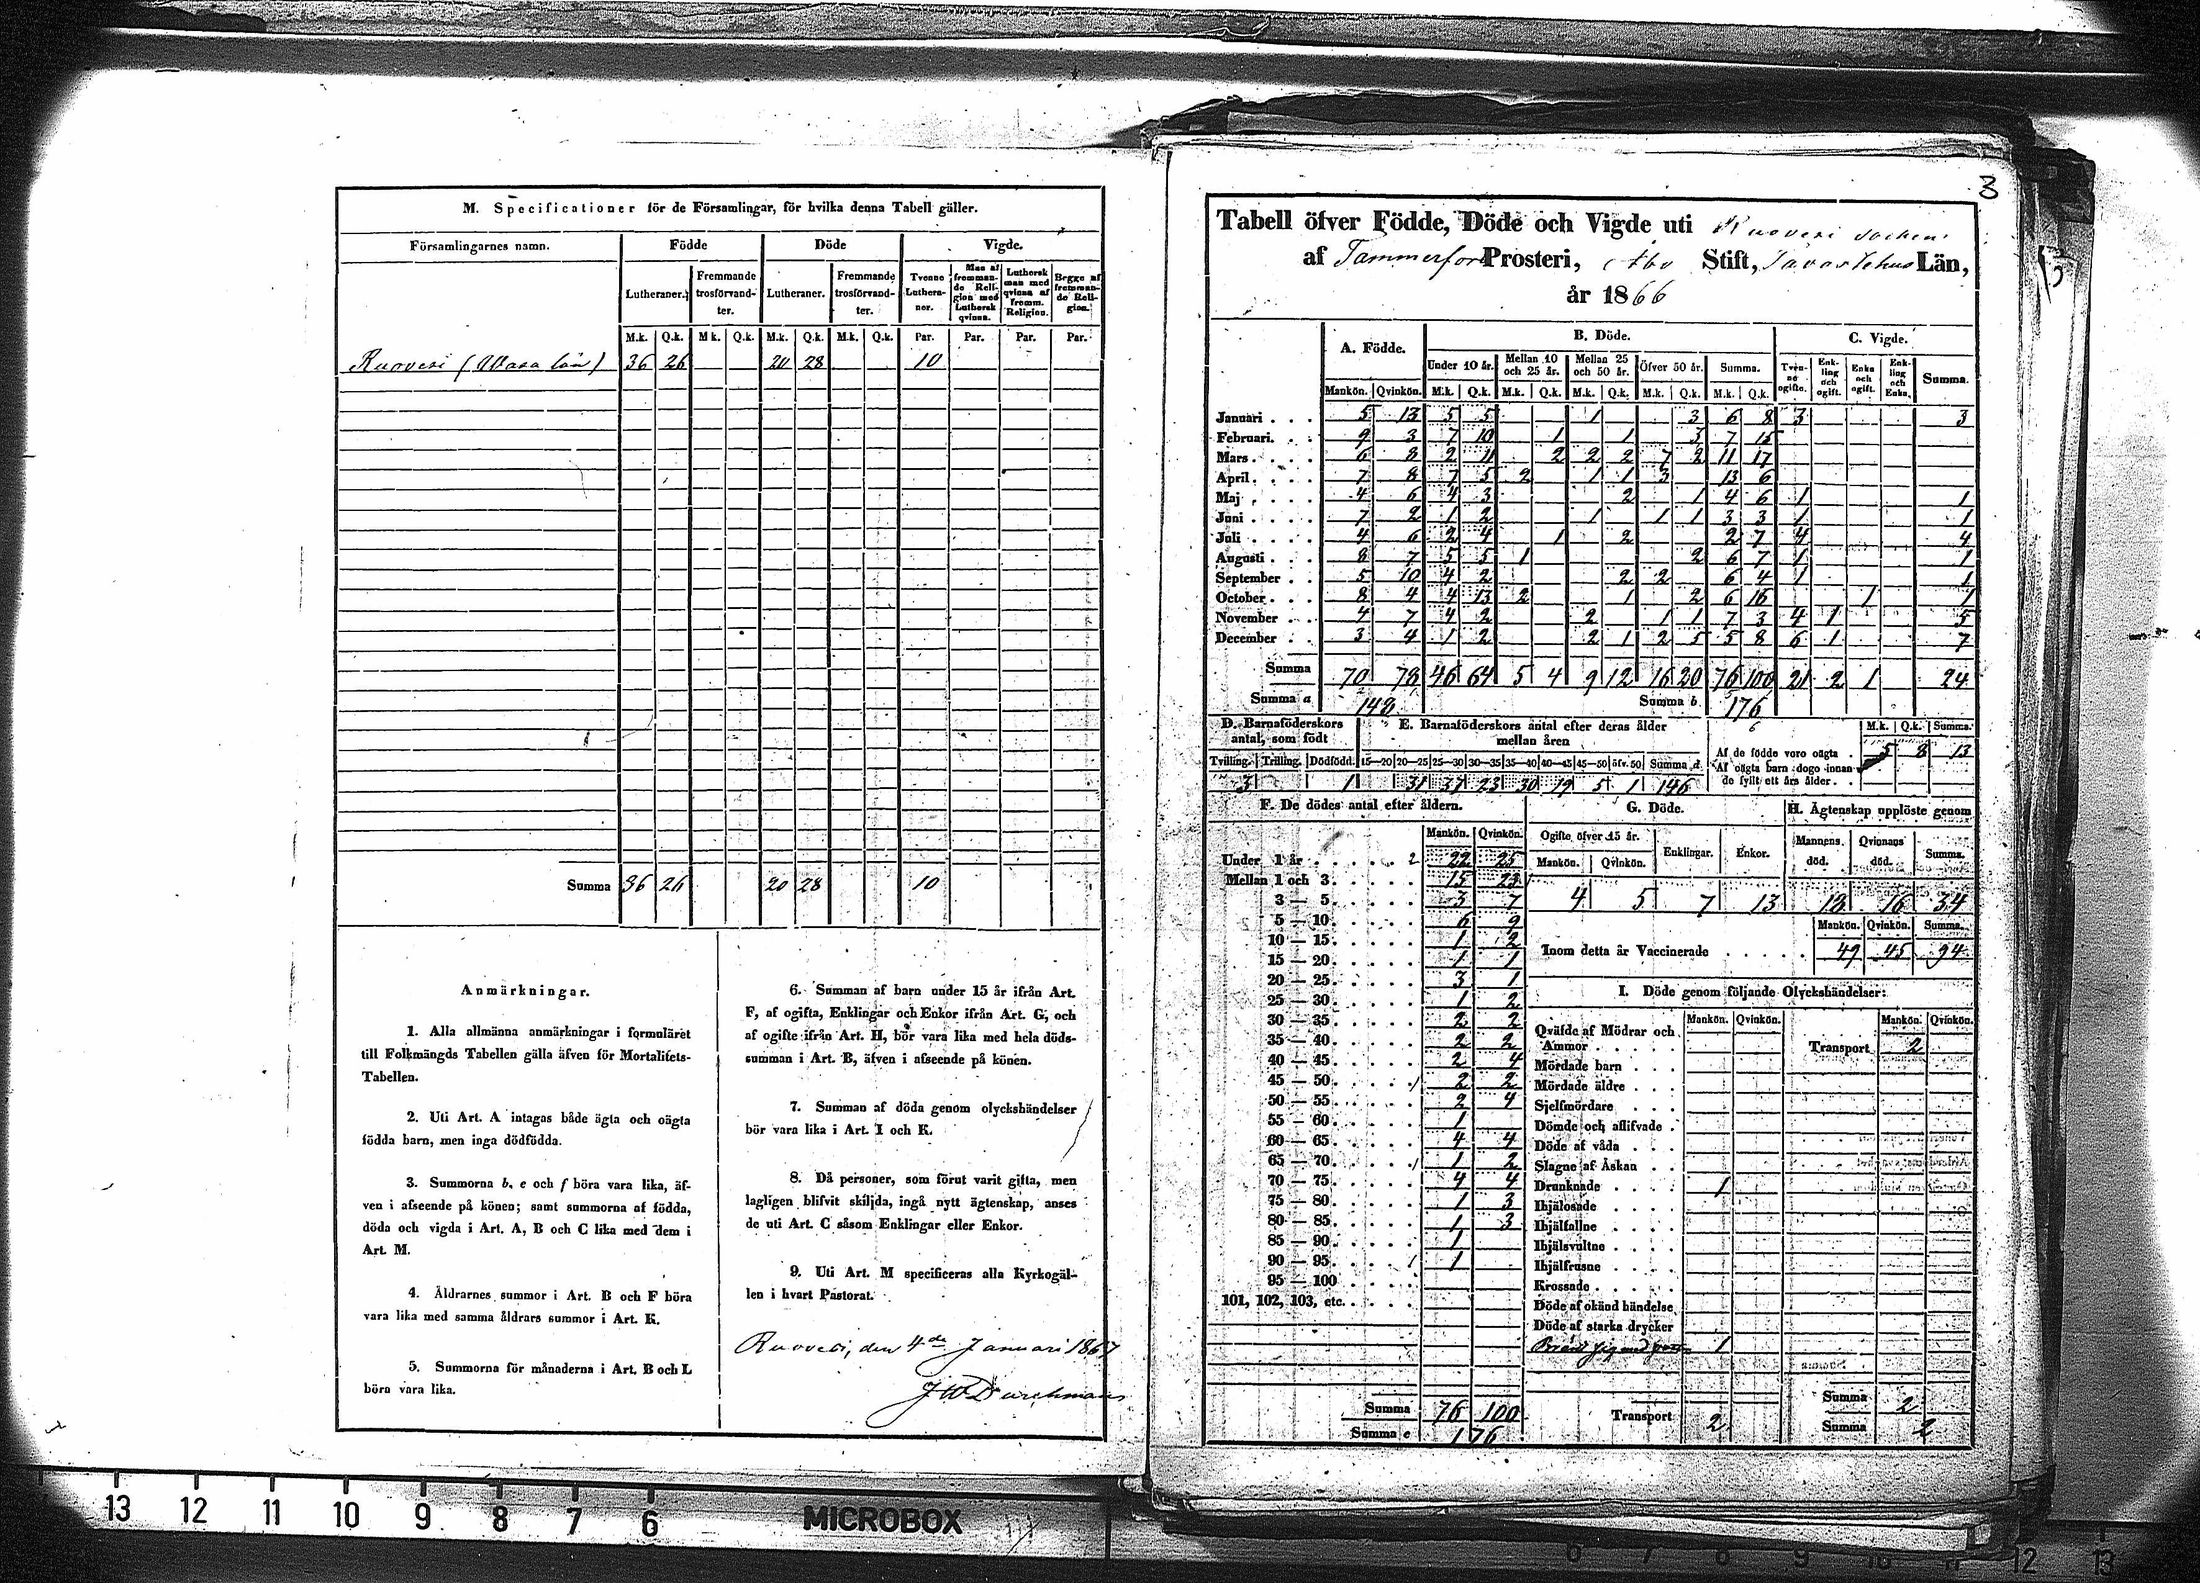 M. Specificationer för de Församlingar, för hvilka denna Tabell gäller.
Församlingarnes namn. Födde Döde Vigde.
Lutheraner. Fremmande trosförvandter. Lutheraner. Fremmande trosförvandter. Tvenne Lutheraner. Man af fremmande Religion med Luthersk qvinna. Luthersk man med qvinna af fremm. Religion. Begge af fremmande Religion.
M.k. Q.k. M.k. Q.k. M.k. Q.k. M.k. Q.k. Par. Par. Par. Par.
Ruovesi (Wasa län) 36 26 20 28 10
Summa 36 26 20 28 10
Anmärkningar.
1. Alla allmänna anmärkningar i formuläret
till Folkmängds Tabellen gälla äfven för Mortalitets-
Tabellen.
2. Uti Art. A intagas både ägta och oägta
födda barn, men inga dödfödda.
3. Summorna b, e och f böra vara lika, äf-
ven i afseende på könen; samt summorna af födda,
döda och vigda i Art. A, B och C lika med dem i
Art. M.
4. Åldrarnes summor i Art. B och F böra
vara lika med samma åldrars summor i Art. K.
5. Summorna för månaderna i Art. B och L
böra vara lika.
6. Summan af barn under 15 år ifrån Art.
F, af ogifta, Enklingar och Enkor ifrån Art. G, och
af ogifte ifrån Art. H, bör vara lika med hela döds-
summan i Art. B, äfven i afseende på könen.
7. Summan af döda genom olyckshändelser
bör vara lika i Art. I och K.
8. Då personer, som förut varit gifta, men
lagligen blifvit skiljda, ingå nytt ägtenskap, anses
de uti Art. C såsom Enklingar eller Enkor.
9. Uti Art. M specificeras alla Kyrkogäl-
len i hvart Pastorat.
Ruovesi, den 4de Januari 1867
J W Durchman
8
Tabell öfver Födde, Döde och Vigde uti Ruovesi socken
af Tammerfors Prosteri, Åbo Stift, Tavastehus Län,
år 1866
A. Födde. B. Döde. C. Vigde.
Under 10 år. Mellan 10 och 25 år. Mellan 25 och 50 år. Öfver 50 år. Summa. Tvenne ogifte. Enkling och ogift. Enka och ogift. Enkling och Enka. Summa.
Mankön. Qvinkön. M.k. Q.k. M.k. Q.k. M.k. Q.k. M.k. Q.k. M.k. Q.k.
Januari 5 13 5 5 1 3 6 8 3 3
Februari 9 3 7 10 1 1 3 7 15
Mars 6 8 2 11 2 2 2 7 2 11 17
April 7 8 7 5 2 1 1 3 13 6
Maj 4 6 4 3 2 1 4 6 1 1
Juni 7 2 1 2 1 1 1 3 3 1 1
Juli 4 6 2 4 1 2 2 7 4 4
Augusti 8 7 5 5 1 2 6 7 1 1
September 5 10 4 2 2 2 6 4 1 1
October 8 4 4 13 2 1 2 6 16 1 1
November 4 7 4 2 2 1 1 7 3 4 1 5
December 3 4 1 2 2 1 2 5 5 8 6 1 7
Summa 70 78 46 64 5 4 9 12 16 20 76 100 21 2 1 24
Summa a 148 Summa b 176
D. Barnaföderskors antal, som födt
Tvilling. Trilling. Dödfödd.
3 1
E. Barnaföderskors antal efter deras ålder mellan åren
15—20 20—25 25—30 30—35 35—40 40—45 45—50 öfv. 50 Summa d
31 37 23 30 19 5 1 146
M.k. Q.k. Summa.
Af de födde voro oägta 5 8 13
Af oägta barn dogo innan de fyllt ett års ålder.
F. De dödes antal efter åldern.
Mankön. Qvinkön.
Under 1 år 2 22 25
Mellan 1 och 3 15 23
3 — 5 3 7
5 — 10 6 9
10 — 15 1 2
15 — 20 1 1
20 — 25 3 1
25 — 30 1 2
30 — 35 2 2
35 — 40 2 2
40 — 45 2 4
45 — 50 2 2
50 — 55 2 4
55 — 60 1
60 — 65 4 4
65 — 70 1 2
70 — 75 4 4
75 — 80 1 3
80 — 85 1 3
85 — 90 1
90 — 95 1
95 — 100
101, 102, 103, etc.
Summa 76 100
Summa e 176
G. Döde.
Ogifte öfver 15 år. Enklingar. Enkor.
Mankön. Qvinkön.
4 5 7 13
H. Ägtenskap upplöste genom
Mannens död. Qvinnans död. Summa.
18 16 34
Mankön. Qvinkön. Summa.
Inom detta år Vaccinerade 49 45 94
I. Döde genom följande Olyckshändelser:
Mankön. Qvinkön. Mankön. Qvinkön.
Qväfde af Mödrar och Ammor
Transport 2
Mördade barn
Mördade äldre
Sjelfmördare
Dömde och aflifvade
Döde af våda
Slagne af Åskan
Drunknade 1
Ihjälosade
Ihjälfallne
Ihjälsvultne
Ihjälfrusne
Krossade
Döde af okänd händelse
Döde af starka drycker
1
Transport 2
Summa 2
Summa 2
13 12 11 10 9 8 7 6
MICROBOX
6 7 8 9 10 11 12 13